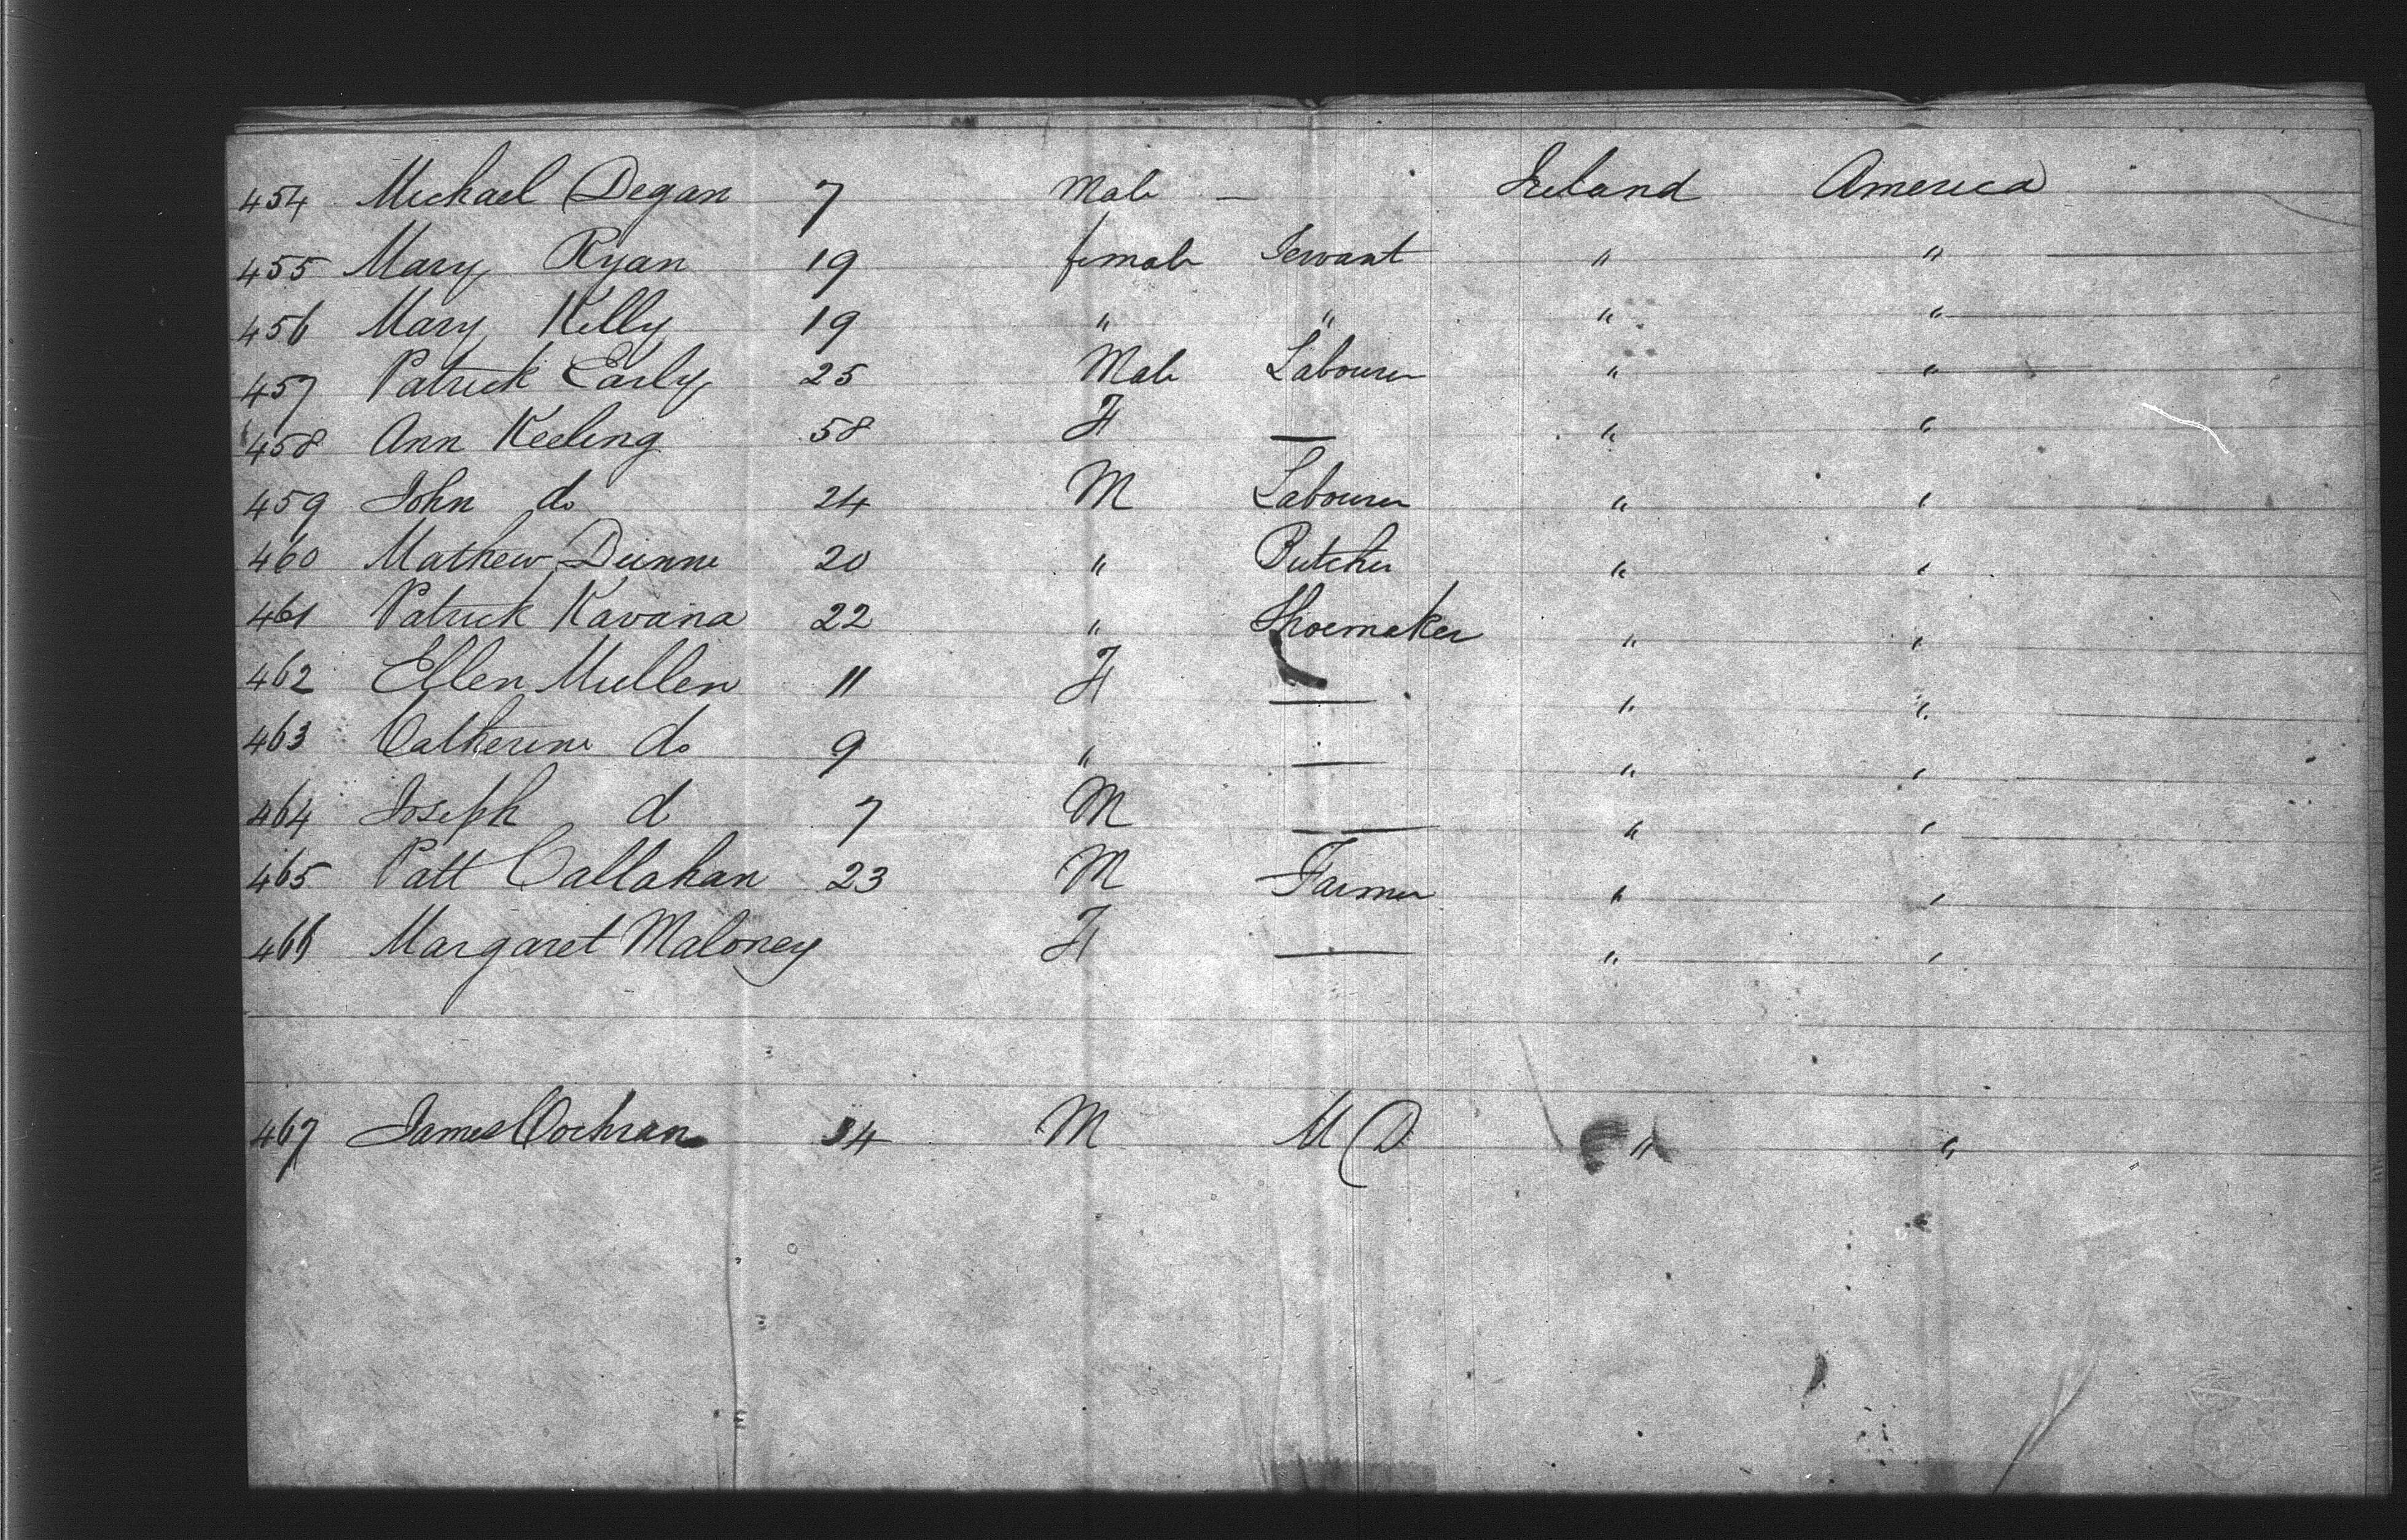 454 Michael Degan 7 Male — Ireland America
455 Mary Ryan 19 female Servant " "
456 Mary Kelly 19 " " " "
457 Patrick Early 25 Male Labourer " "
458 Ann Keeling 58 F — " "
459 John do 24 M Labourer " "
460 Mathew Dunne 20 " Butcher " "
461 Patrick Kavana 22 " Shoemaker " "
462 Ellen Mullen 11 F — " "
463 Catherine do 9 " — " "
464 Joseph d 7 M — " "
465 Patt Callahan 23 M Farmer " "
466 Margaret Maloney F — " "
467 James Cochran M M D " "